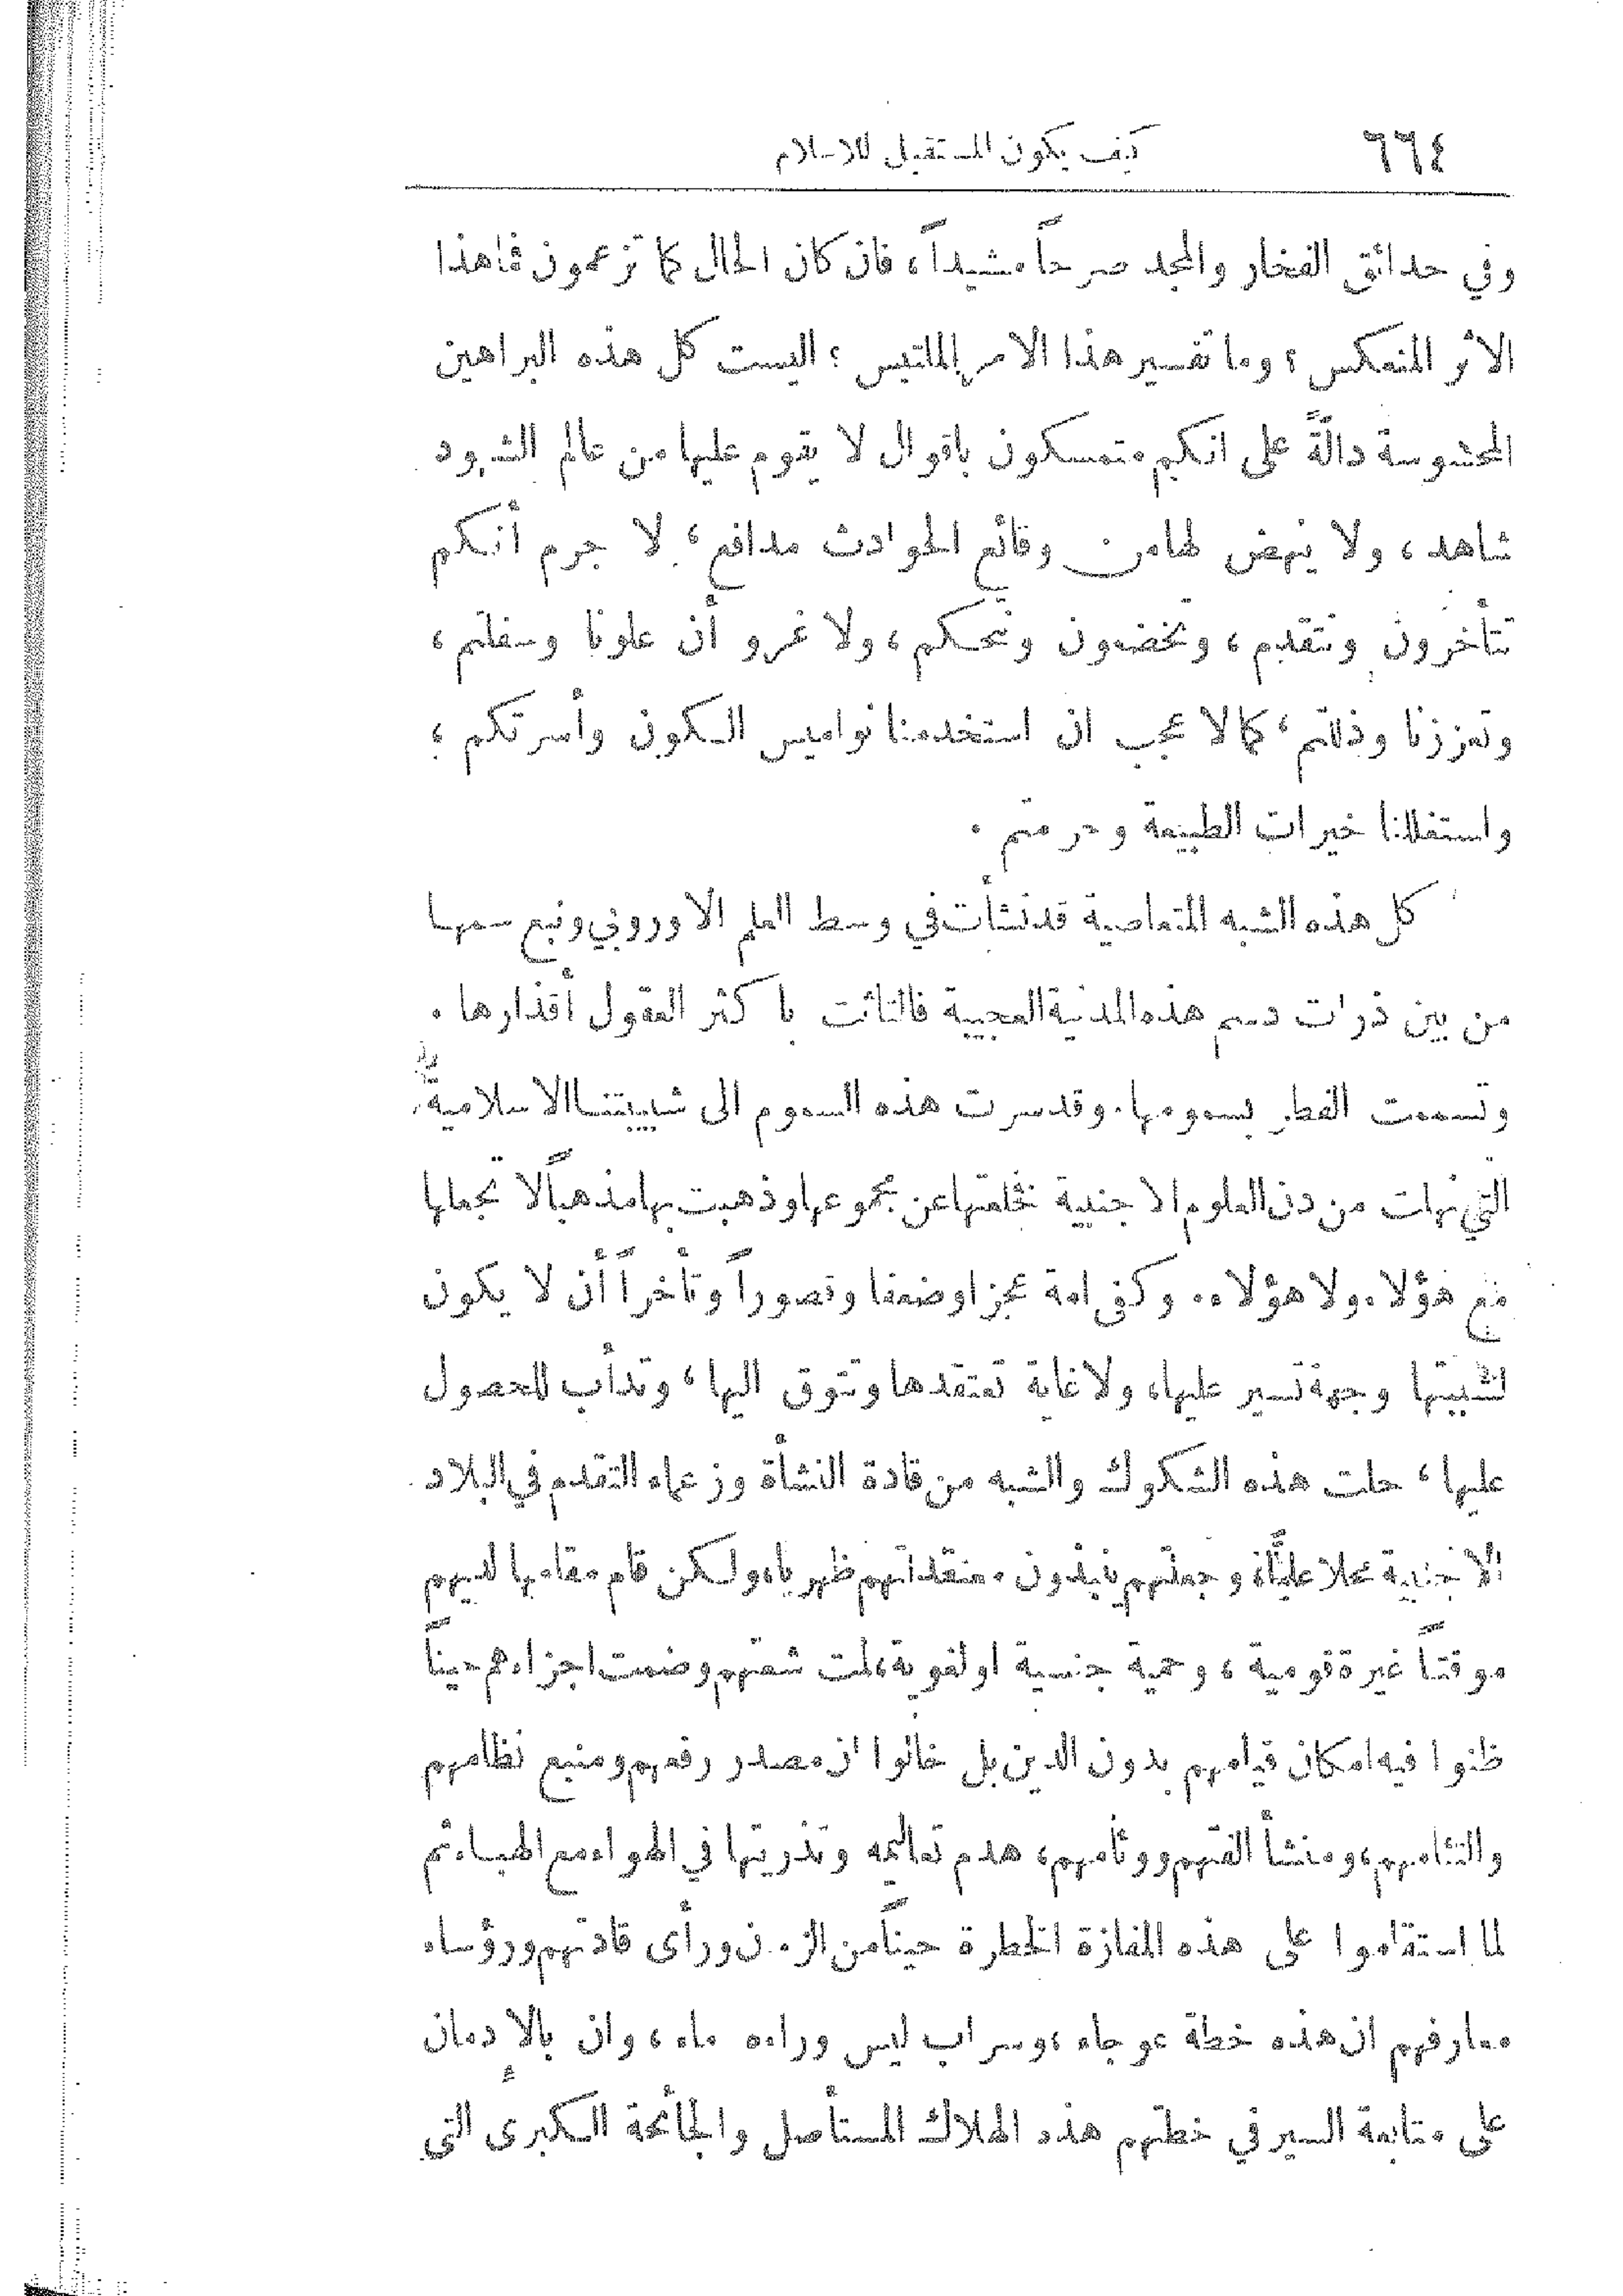 ٦٦٤ كيف يكون المستقبل للاسلام
وفي حدائق الفخار والمجد صرحاً مشيداً، فان كان الحال كما تزعمون فما هذا
الاثر المنعكس؟ وما تفسير هذا الامر الملتبس؟ اليست كل هذه البراهين
المحسوسة دالّةً على انكم متمسكون باقوال لا يقوم عليها من عالم الشهود
شاهد، ولا ينهض لها من وقائع الحوادث مدافع؛ لا جرم أنكم
تتأخرون ونتقدم، وتخضعون ونحكم، ولا غرو أن علونا وسفلتم،
وتعززنا وذللتم؛ كما لا عجب ان استخدمنا نواميس الكون وأسرتكم؛
واستغللنا خيرات الطبيعة وحرمتم.
كل هذه الشبه المتعاصية قد نشأت في وسط العلم الاوروبي ونبع سمها
من بين ذرات دسم هذه المدنية العجيبة فالتاثت با كثر العقول أقذارها.
وتسممت الفطر بسمومها. وقد سرت هذه السموم الى شبيبتنا الاسلامية
التي نهلت من دن العلوم الاجنبية نخلعتها عن مجموعها وذهبت بها مذهباً لا تجعلها
مع هؤلاء ولا هؤلاء. وكفى امة عجزا وضعفا وقصوراً وتأخراً أن لا يكون
لشبيبتها وجهة تسير عليها، ولا غاية تعتقدها وتتوق اليها؛ وتدأب للحصول
عليها؛ حلت هذه الشكوك والشبه من قادة النشأة وزعماء التقدم في البلاد
الاجنبية محلا عليًّا، وجعلتهم ينبذون معتقداتهم ظهرياء ولكن قام مقامها لديهم
موقتاً غيرة قومية، وحمية جنسية او لغوية، لمت شعثهم وضمت اجزاءهم حيناً
ظنوا فيه امكان قيامهم بدون الدين بل خالوا ان مصدر رقعهم ومنبع نظامهم
والتئامهم، ومنشأ الفتهم ووئامهم، هدم تعاليمه وتذريتها في الهواء مع الهباء ثم
لما استقاموا على هذه المفازة الخطرة حيناً من الزمن ورأى قادتهم ورؤساء
معارفهم ان هذه خطة عوجاء، وسراب ليس وراءه ماء، وان بالادمان
على متابعة السير في خطتهم هذه الهلاك المستأصل والجائحة الكبرى التي